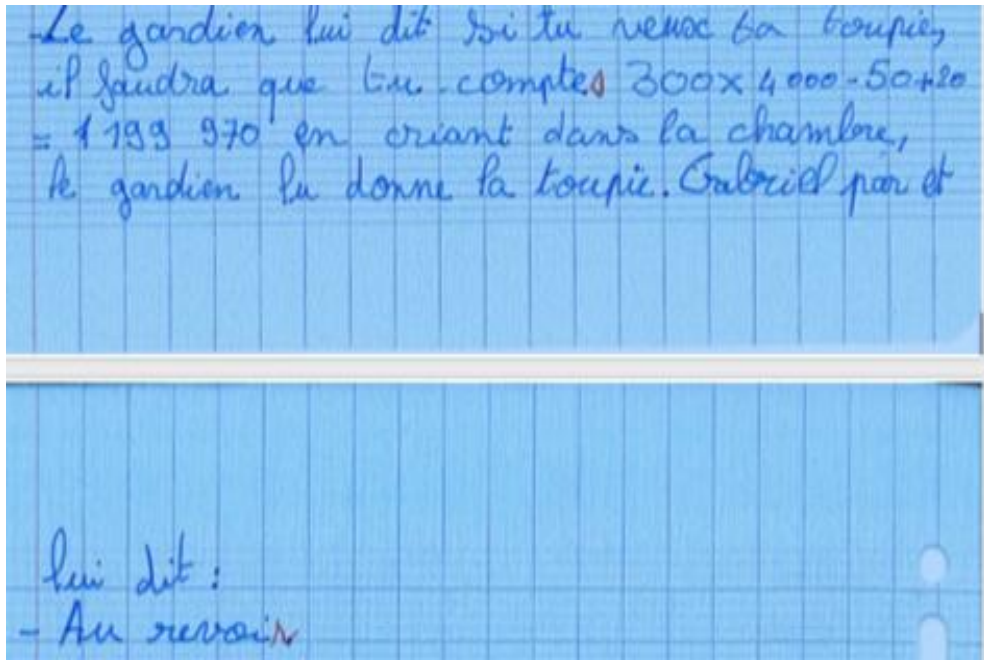 -Le gardien lui dit si tu veux ta toupie,
il faudra que tu comptes 300x4 000-50+20
= 1 199 970 en criant dans la chambre,
le gardien lu donne la toupie. Gabriel par et
lui dit :
- Au revoir